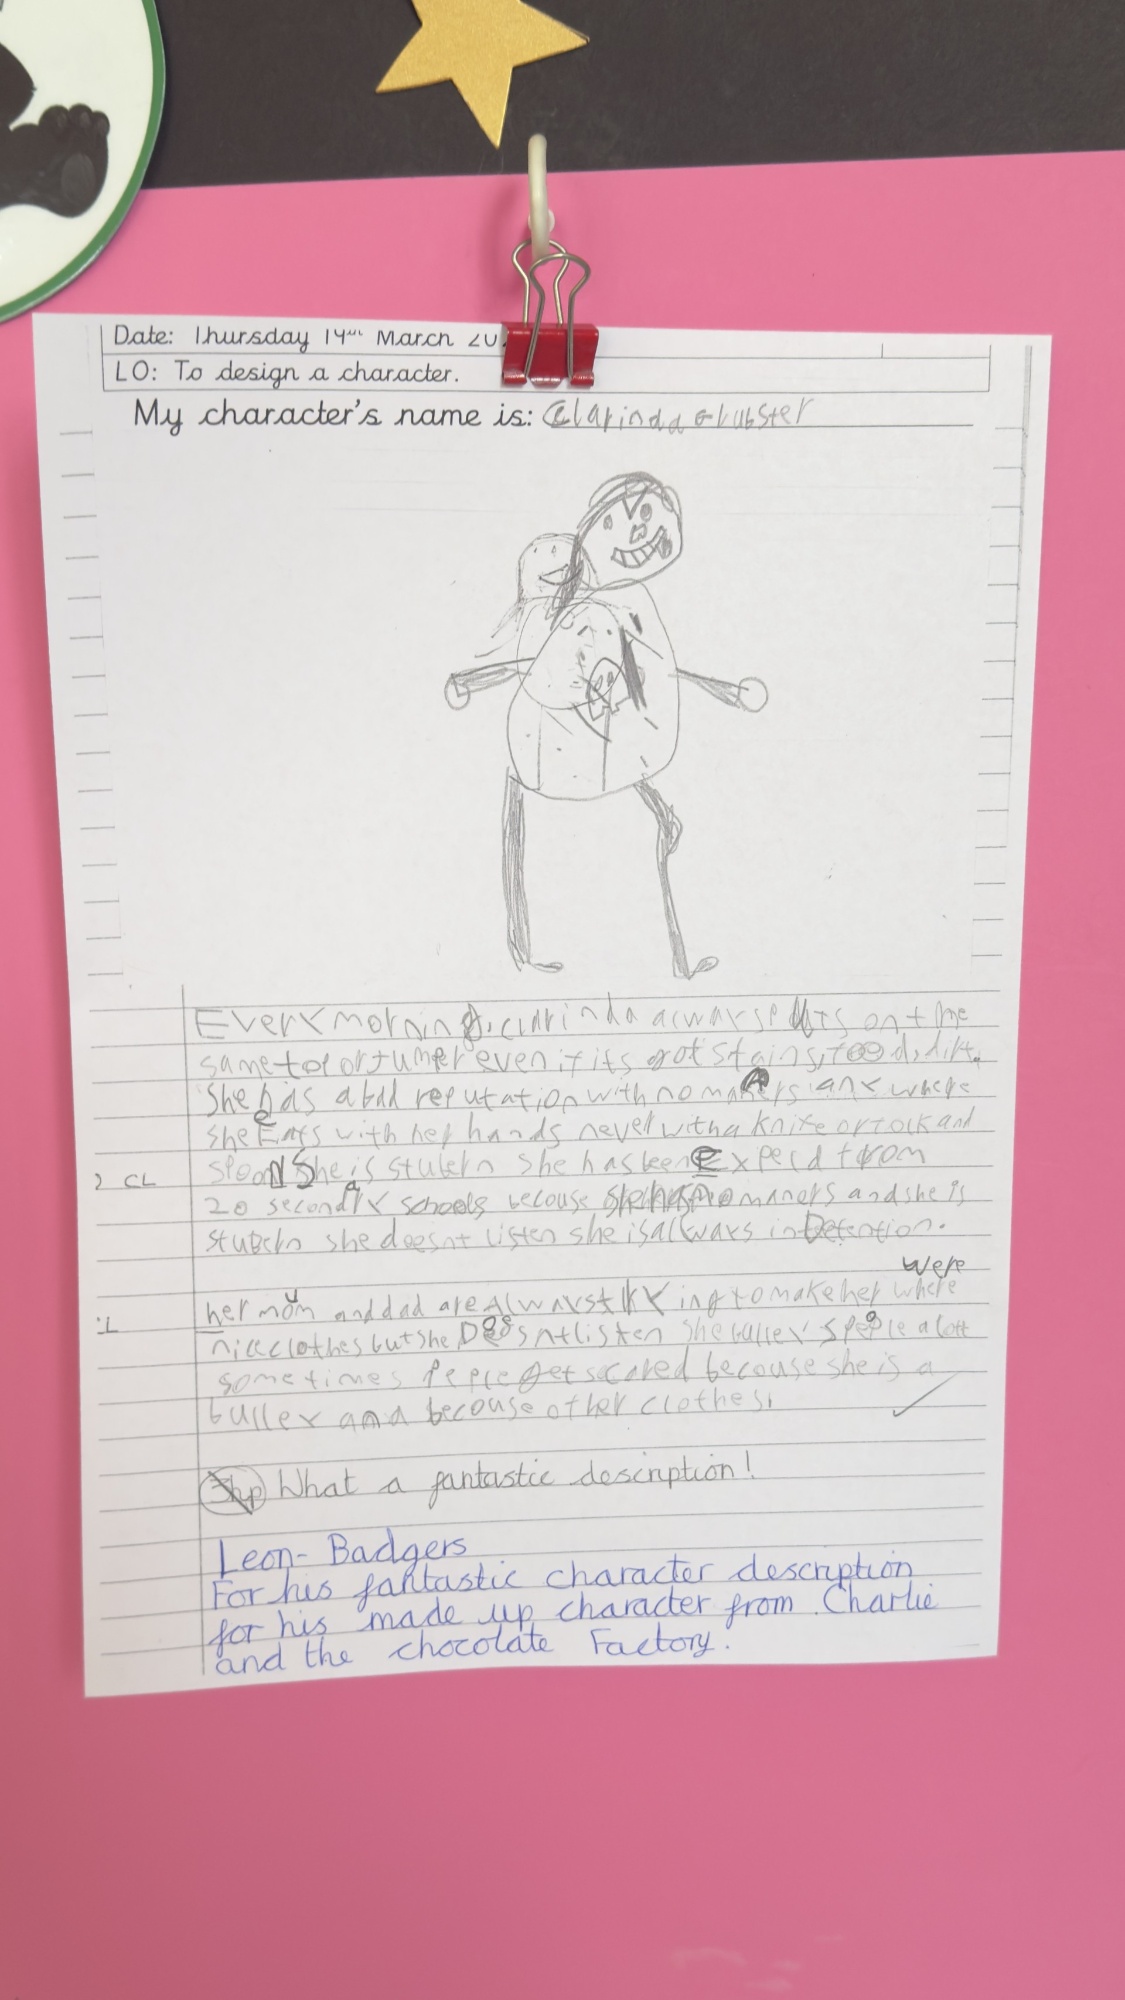 Date: Thursday 14th March 20
LO: To design a character.
My character's name is: Clarinda Grubster
Every morning, clarinda alwarse puts on the
same top or jumper even if its got stains, food, dirt.
She has a bad reputation with no maners any where
she Eats with her hands never with a knife or fork and
spooN She is stubern she has been Expeld from
2 CL
20 secondary schools becouse she has no maners and she is
stubern she doesnt listen she is allways in Detention.
were
her mum and dad are Alwayst trying to make her where
:L
nice clothes but she Doesnt listen she bulley's people a lott
sometimes people get scared becouse she is a
bulley and becouse of her clothes.
What a fantastic description!
Leon- Badgers
For his fantastic character description
for his made up character from Charlie
and the chocolate Factory.